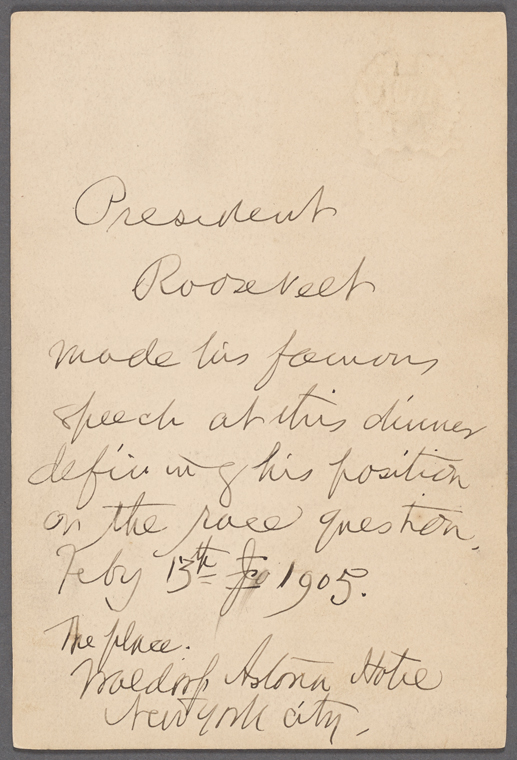 President
Roosevelt
made his famous
speech at this dinner
defining his position
on the race question.
Feby 13th 1905.
The place.
Waldorf Astoria Hotel
New York City,